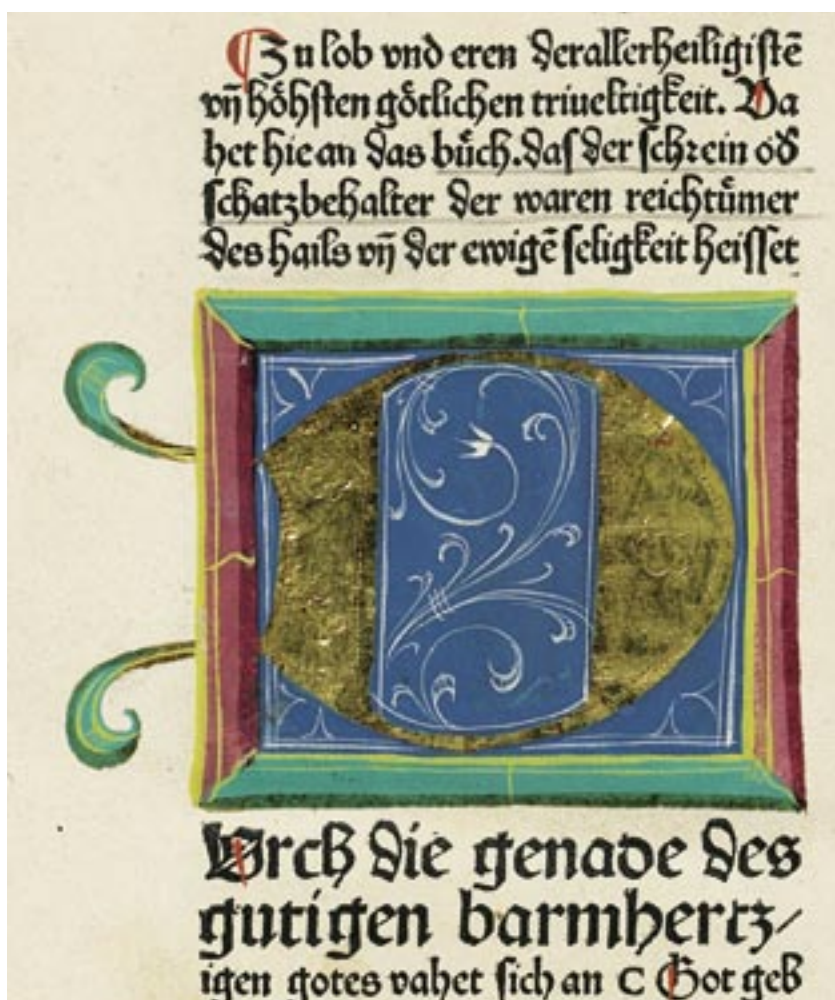 Zu lob vnd eren der allerheiligistē
vn̄ hoͤhsten goͤtlichen triueltigkeit. Va
het hie an das buͤch. das der schrein od̄
schatzbehalter der waren reichtuͤmer
des hails vn̄ der ewigē seligkeit heisset
D
Vrch die genade des
gutigen barmhertz/
igen gotes vahet sich an C Got geb